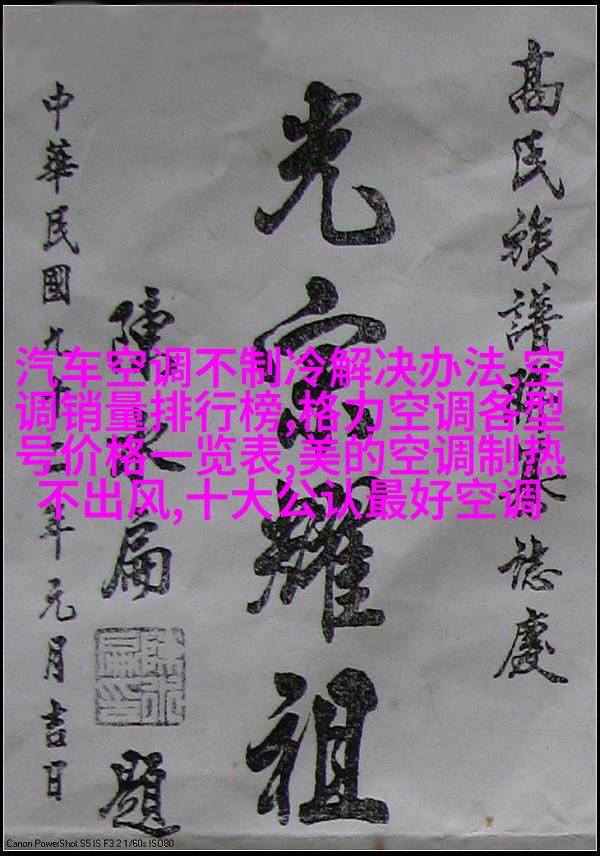 高氏族譜誌慶
光宗耀祖
陳水扁題
中華民國九十年元月吉日
汽车空调不制冷解决办法,空
调销量排行榜,格力空调各型
号价格一览表,美的空调制热
不出风,十大公认最好空调
Canon PowerShot S5 IS F3.2 1/60s ISO80